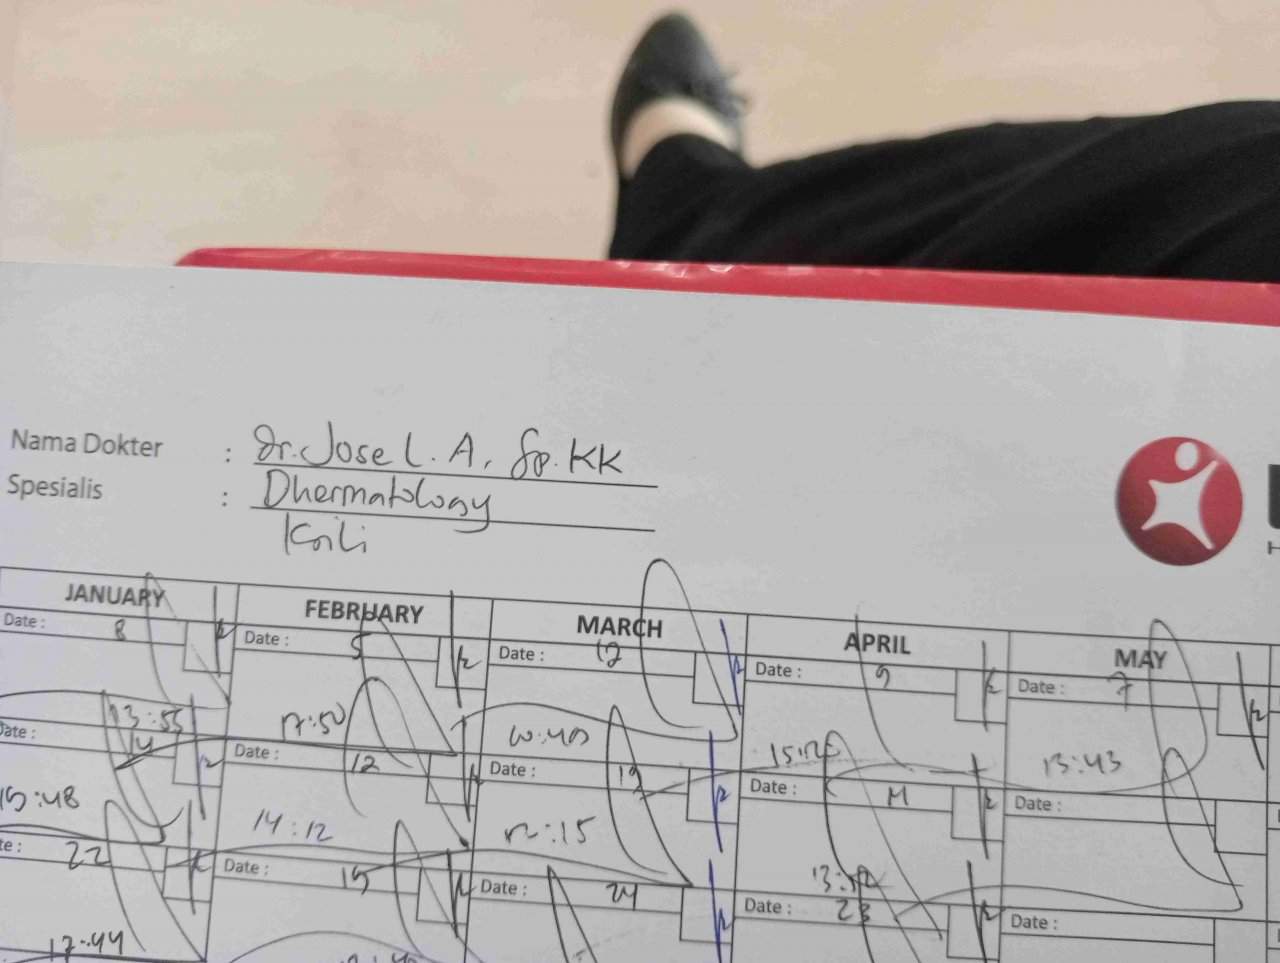 Nama Dokter : Dr. Jose L. A, Sp. KK
Spesialis : Dhermatology
JANUARY FEBRUARY MARCH APRIL MAY
Date : 8 Date : 5 Date : 12 Date : 9 Date : 7
13:55 17:50 13:43
Date : 12 Date : 19 Date : Date :
15:48 14:12 12:15
22 Date : 19 Date : 24 Date : 23 Date :
17:44